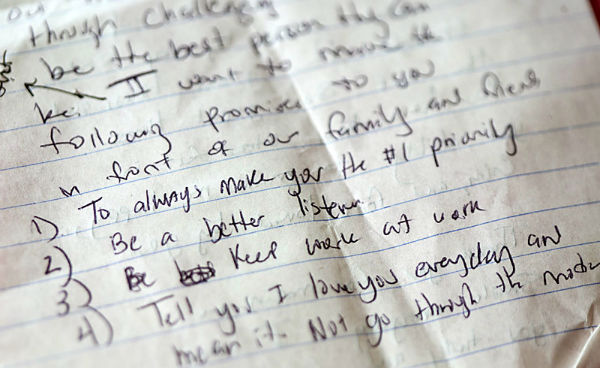 our
through challenging
be the best person they can
be. I want to make the
following promises to you
in front of our family and friends
1) To always make you the #1 priority
2) Be a better listener
3) Be Keep work at work
4) Tell you I love you everyday and
mean it. Not go through the motions